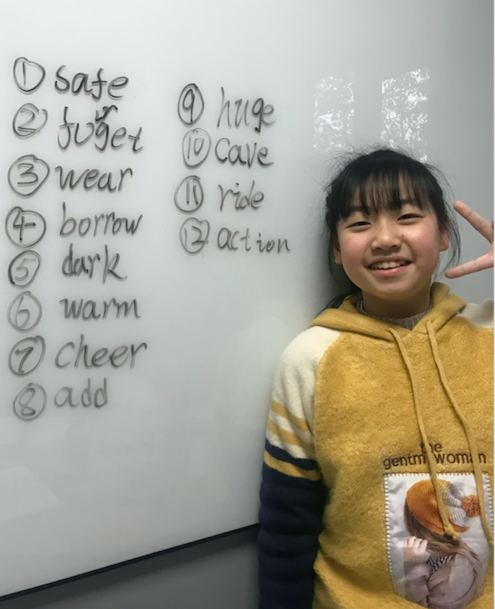 ① safe
② fuget
③ wear
④ borrow
⑤ dark
⑥ warm
⑦ cheer
⑧ add
⑨ huge
⑩ cave
⑪ ride
⑫ action
the
gentm woman